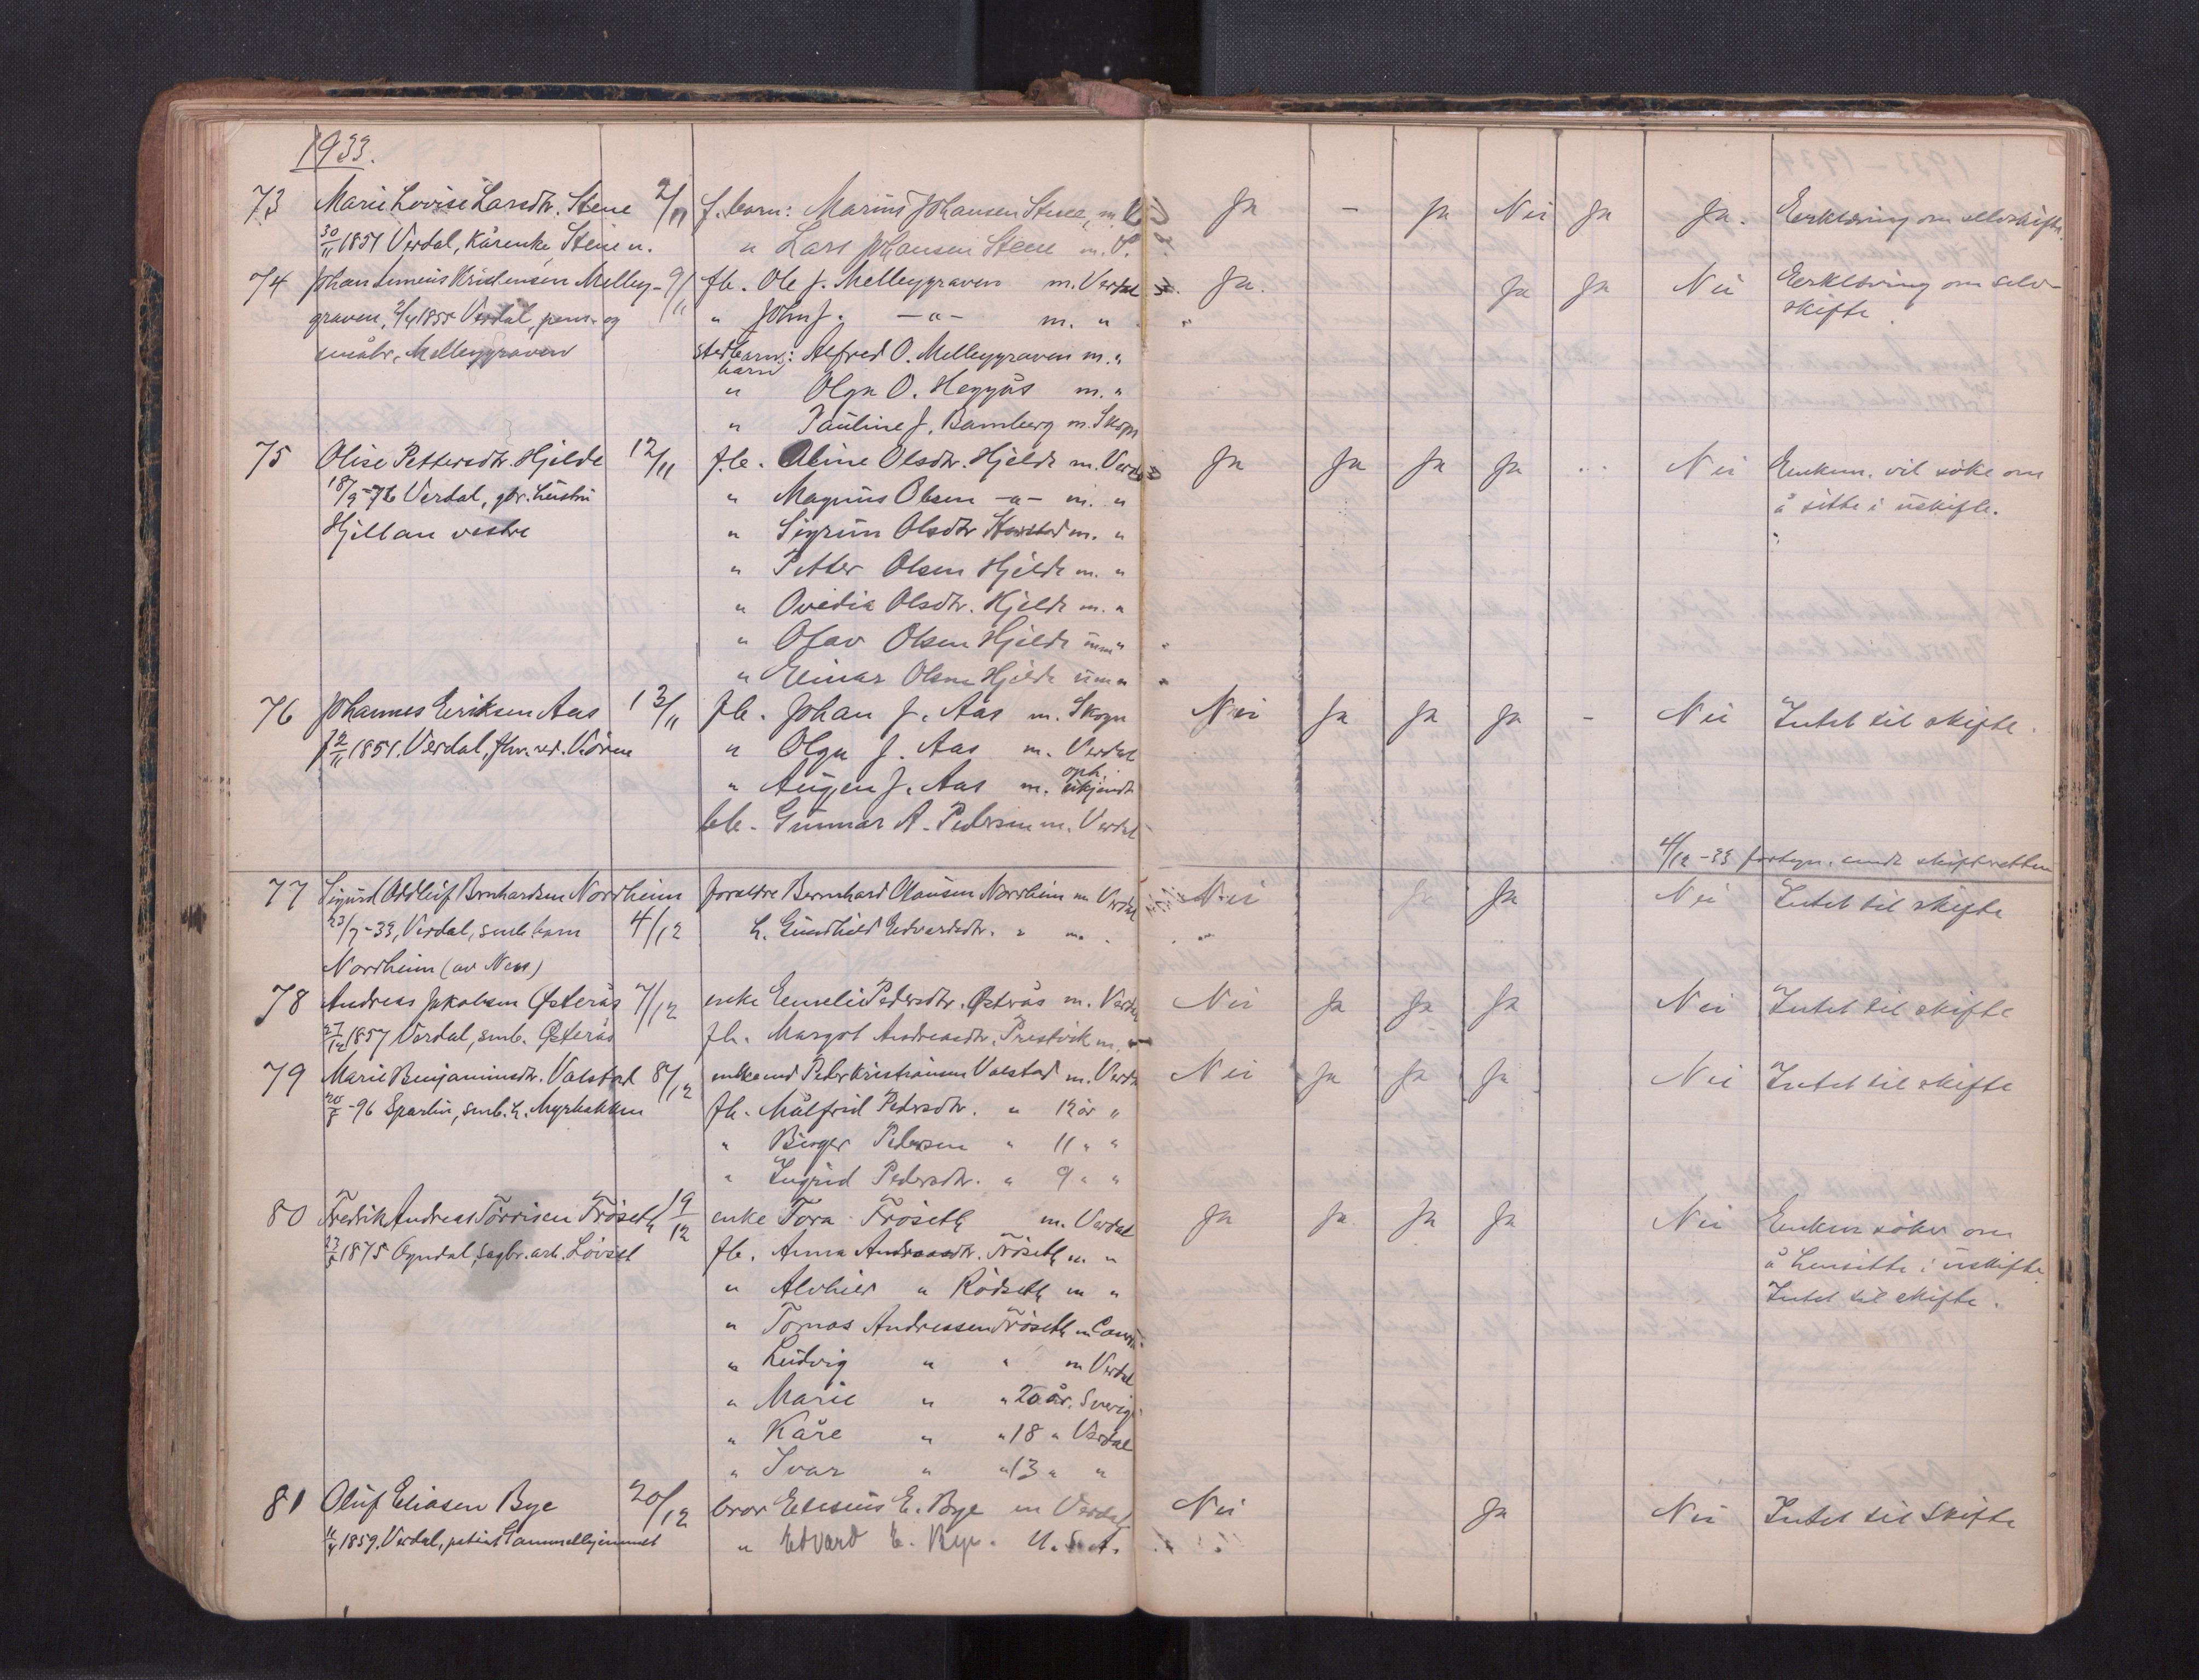 1933.
73 Marie Lovise Larsdtr. Stene 2/11 f. barn: Marius Johansen Stene, m. V. Ja - Ja Nei Ja Ja. Erklæring om selvskifte.
30/11 1851 Verdal, Kårenke, Stene n. " Lars Johansen Stene m. V.
74 Johan Kristensen Melbyg- 9/11 fb. Ole J. Melbygraven m. Verdal Ja. Ja Ja Nei Erklæring om selv-
graven, 1855 Verdal, pens. og " John J. -"- m. " skifte.
småbr. Melbygraven stedbarn: Alfred O. Melbygraven m. "
barn
" Olga O. Heggås m. "
" Pauline J. Bamberg m. Skogn
75 Olise Pettersdtr. Hjelde 12/11 fb. Aline Olsdtr. Hjelde m. Verdal Ja Ja Ja Ja .. Nei Enkem. vil söke om
18/9-72 Verdal, gbr. hustru " Magnus Olsen -"- m. " å sitte i uskifte.
Hjellan vestre " Sigrun Olsdtr m. "
" Petter Olsen Hjelde m. "
" Ovedia Olsdtr. Hjelde m. "
" Olav Olsen Hjelde um "
" Einar Olsen Hjelde um "
76 Johannes Eriksen Aas 13/11 fb. Johan J. Aas m. Skogn Nei Ja Ja Ja - Nei Intet til skifte.
f 2/11 1851. Verdal, fhv. red. Vören " Olga J. Aas m. Verdal
" Augen J. Aas m. oph. ukjendt
bb. Gunnar A. Pedersen m. Verdal
4/12-33 skifteretten
77 Sigurd Oddleif Bernhardsen Nordheim foreldre Bernhard Olausen Nordheim m Verdal Nei Ja Ja Nei Intet til skifte
23/7-33, Verdal, smb. barn 4/12 h. Gundhild Edvardsdtr. " m.
Nordheim (av Ness)
78 Andreas Jakobsen Østerås 7/12 enke Emelie Pedersdtr. Østerås m. Verdal Nei Ja Ja Ja Nei Intet til skifte
27/12 1857 Verdal, smb. Østerås fb. Margot Andreasdtr. Prestvik m. "
79 Marie Benjaminsdtr. Valstad 8/12 enkemd Peder Kristiansen Valstad m. Verdal Nei Ja Ja Ja Nei Intet til skifte
-96 Sparbu, smb. h. Myrbakken fb. Målfrid Pedersdtr. " 12 år "
" Birger Pedersen " 11 " "
" Ingrid Pedersdtr. " 9 " "
80 Fredrik Andreas Törrisen Fröseth 19/12 enke Tora Fröseth m. Verdal Ja Ja Ja Ja Nei Enken söker om
1875 Ogndal, sagbr. arb. Lövset fb. Anna Andreasdtr. Fröseth m " å hensitte i uskifte
" Alvhild " Rödseth m " Intet til skifte.
" Tomas Andreasen Fröseth m
" Ludvig " " m Verdal
" Marie " " 20 år. Sverige
" Kåre " " 18 " Verdal
" Ivar " " 13 " "
81 Oluf Eliasen Bye 20/12 bror Elesius E. Bye m Verdal Nei Ja Nei Intet til Skifte
1859. Verdal, patient Gammelhjemmet " Edvard E. Bye. U.S.A.